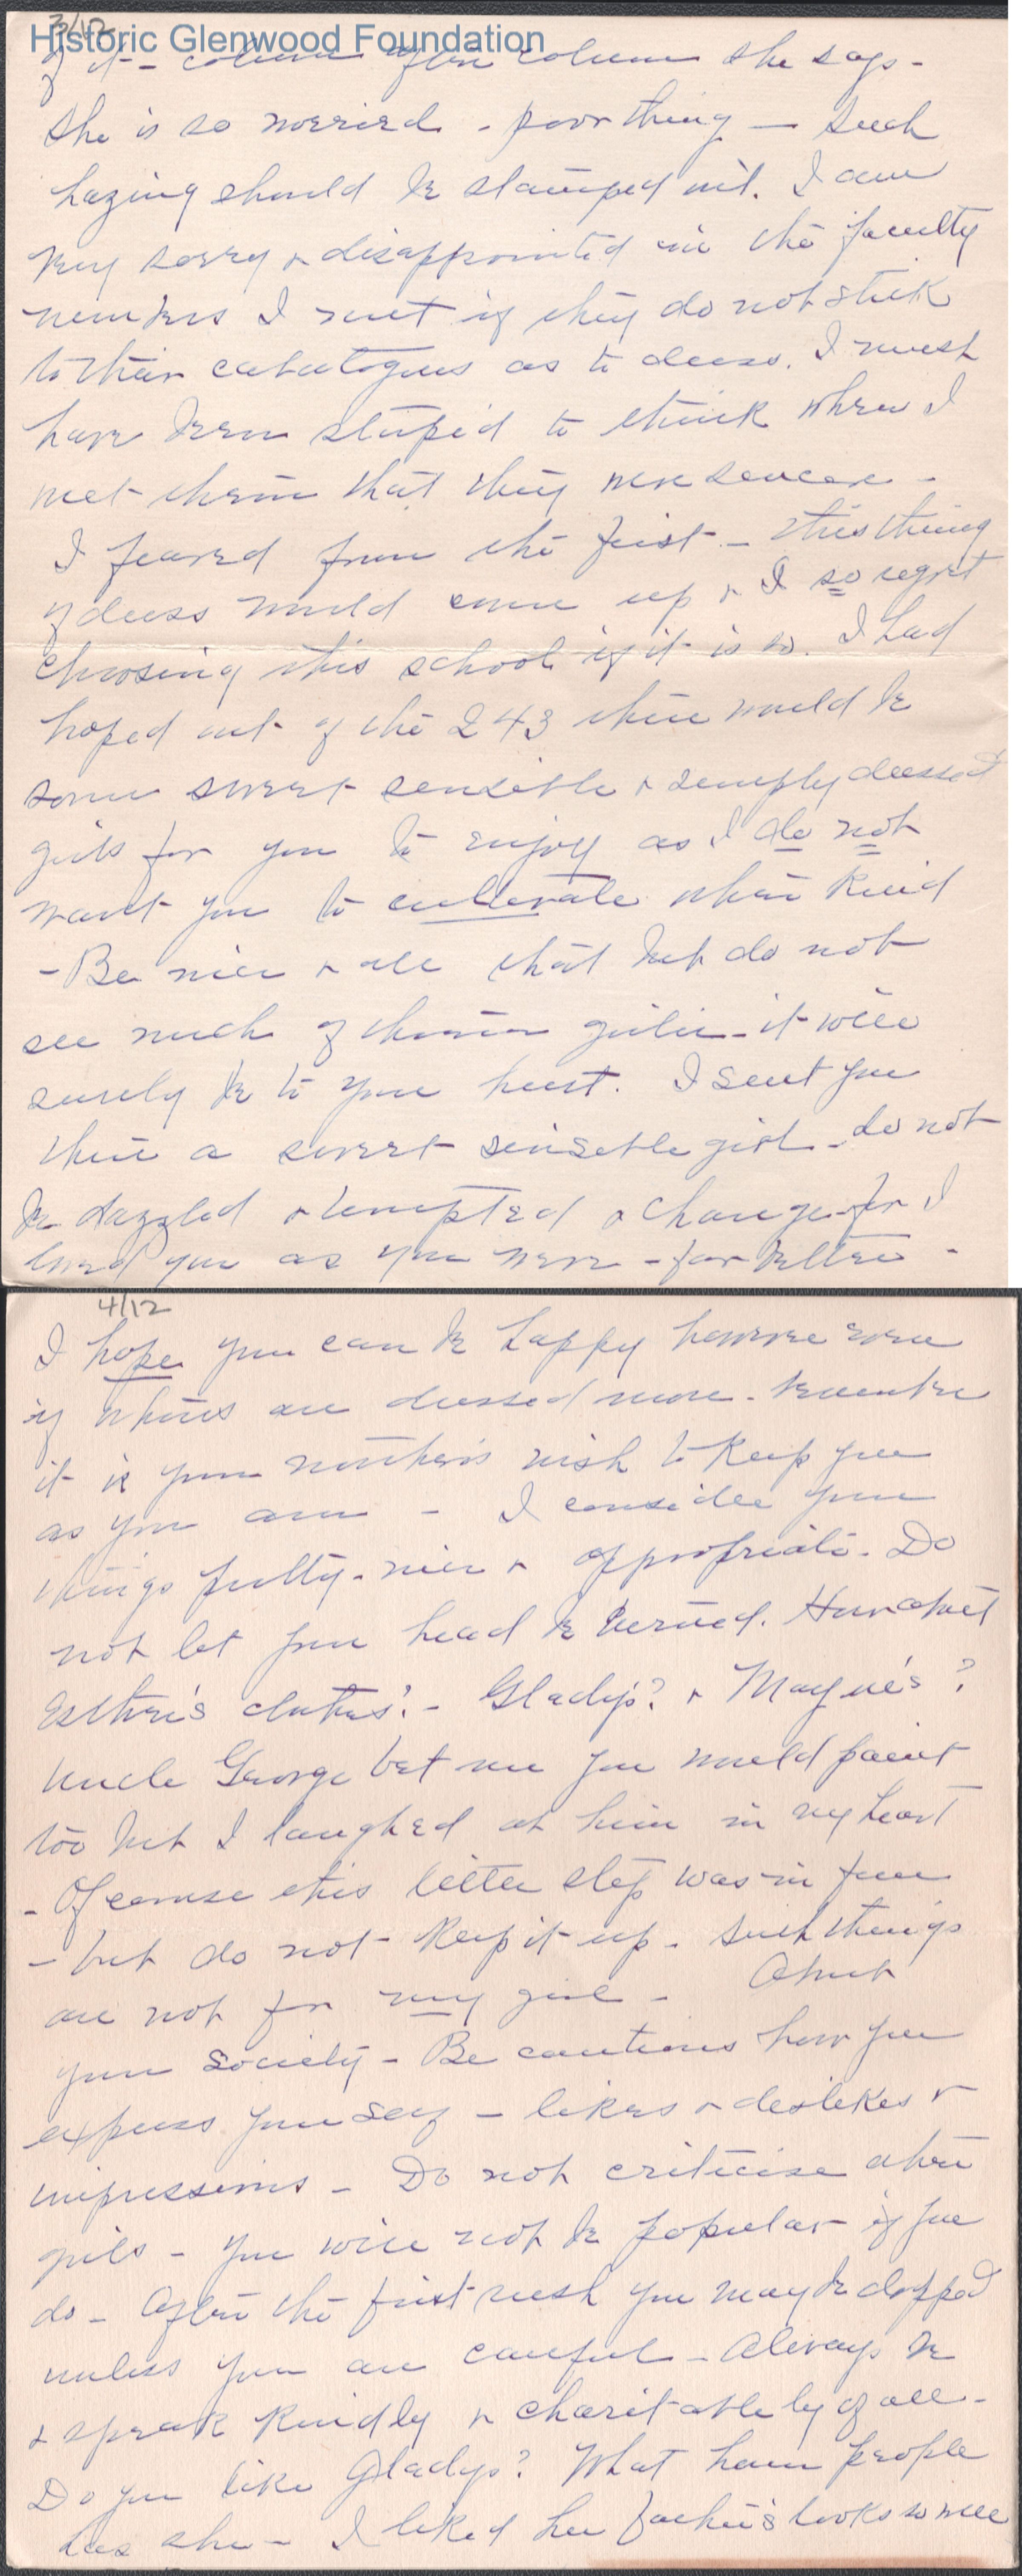 3/12
Historic Glenwood Foundation
of it - column after column she says -
she is so worried - poor thing — such
hazing should be stamped out. I am
very sorry & disappointed in the faculty
members I met if they do not stick
to their catalogues as to dress. I must
have been stupid to think when I
met them that they were sincere -
I feared from the first - this thing
of dress would come up & I so regret
choosing this school if it is so. I had
hoped out of the 243 there would be
some sweet sensible & simply dressed
girls for you to enjoy as I do not
want you to cultivate other kind
- Be nice & all that but do not
see much of them - it will
surely be to your hurt. I sent you
there a sweet sensible girl - do not
be dazzled & tempted & change - for I
loved you as you were - far better -
4/12
I hope you can be happy however even
if others are dressed more - remember
it is your mother's wish to keep you
as you are - I consider your
things pretty - nice & appropriate. Do
not let your head be turned. How about
Esther's clothes? - Gladys? & Mayme's?
Uncle George bet me you would paint
too but I laughed at him in my heart
- Of course this little step was in fun
- but do not keep it up - such things
are not for my girl - About
your society - Be cautious how you
express your say - likes & dislikes &
impressions - Do not criticise other
girls - you will not be popular if you
do - After the first rush you may be dropped
unless you are careful - Always be
& speak kindly & charitablely of all -
Do you like Gladys? What home people
has she - I liked her father's looks so well